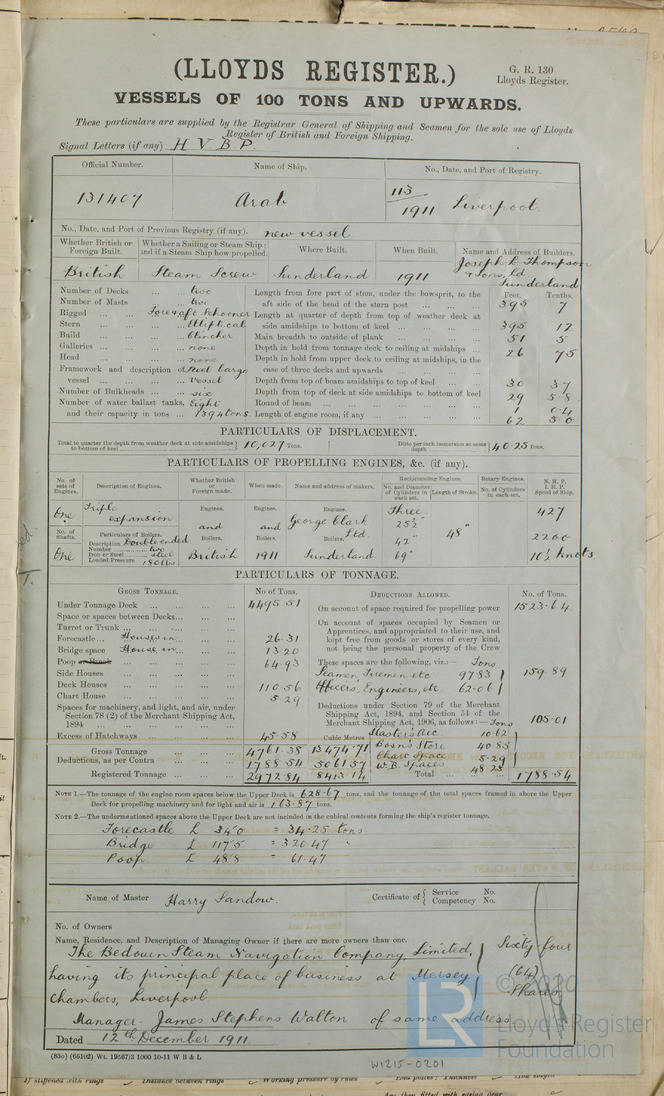 (LLOYDS REGISTER.)
G. R. 130
Lloyds Register.
VESSELS OF 100 TONS AND UPWARDS.
These particulars are supplied by the Registrar General of Shipping and Seamen for the sole use of Lloyds
Register of British and Foreign Shipping.
Signal Letters (if any) H V B P.
Official Number. Name of Ship. No., Date, and Port of Registry.
131407 Arab 113/1911 Liverpool.
No., Date, and Port of Previous Registry (if any). new vessel
Whether British or Foreign Built. Whether a Sailing or Steam Ship; and if a Steam Ship how propelled. Where Built. When Built. Name and Address of Builders.
British Steam Screw Sunderland 1911 Joseph L Thompson & Sons, Ld Sunderland
Feet. Tenths.
Number of Decks two
Number of Masts two
Rigged Fore & aft Schooner
Stern Elliptical
Build Clincher
Galleries none
Head none
Framework and description of vessel Steel cargo vessel
Number of Bulkheads six
Number of water ballast tanks, and their capacity in tons Eight 1394 tons
Length from fore part of stem, under the bowsprit, to the aft side of the head of the stern post 395 7
Length at quarter of depth from top of weather deck at side amidships to bottom of keel 395 12
Main breadth to outside of plank 51 5
Depth in hold from tonnage deck to ceiling at midships 26 75
Depth in hold from upper deck to ceiling at midships, in the case of three decks and upwards
Depth from top of beam amidships to top of keel 30 37
Depth from top of deck at side amidships to bottom of keel 29 58
Round of beam 1 04
Length of engine room, if any 62 50
PARTICULARS OF DISPLACEMENT.
Total to quarter the depth from weather deck at side amidships to bottom of keel 10,027 Tons.
Ditto per inch immersion at same depth 40.25 Tons.
PARTICULARS OF PROPELLING ENGINES, &c. (if any).
No. of sets of Engines. Description of Engines. Whether British or Foreign made. When made. Name and address of makers. Reciprocating Engines. Rotary Engines. N. H. P. I. H. P. Speed of Ship.
No. and Diameter of Cylinders in each set. Length of Stroke. No. of Cylinders in each set.
One Triple expansion Engines. and Engines. and Engines. George Clark Ltd. Three 25½" 42" 69" 48" 427
No. of Shafts. Particulars of Boilers. Boilers. Boilers. Boilers. 2200
One Description Double ended Number two Iron or Steel steel Loaded Pressure 180 lbs. British 1911 Sunderland 10½ knots
PARTICULARS OF TONNAGE.
GROSS TONNAGE. No of Tons.
Under Tonnage Deck 4495.51
Space or spaces between Decks
Turret or Trunk
Forecastle House in 26.31
Bridge space House in 13.20
Poop or Break 64.93
Side Houses
Deck Houses 110.56
Chart House 5.29
Spaces for machinery, and light, and air, under Section 78 (2) of the Merchant Shipping Act, 1894
Excess of Hatchways 45.58
Cubic Metres
Gross Tonnage 4761.38 13474.71
Deductions, as per Contra 1788.54 5061.57
Registered Tonnage 2972.84 8413.14
DEDUCTIONS ALLOWED. No. of Tons.
On account of space required for propelling power 1523.64
On account of spaces occupied by Seamen or Apprentices, and appropriated to their use, and kept free from goods or stores of every kind, not being the personal property of the Crew
These spaces are the following, viz.:— Tons
Seamen, Firemen etc 97.83
Officers, Engineers, etc. 62.06 159.89
Deductions under Section 79 of the Merchant Shipping Act, 1894, and Section 54 of the Merchant Shipping Act, 1906, as follows:— Tons
Master's acc. 10.62
Boson's Store 40.85
Chart Space 5.29
W.B. Spaces 48.25 105.01
Total 1788.54
NOTE 1.—The tonnage of the engine room spaces below the Upper Deck is 628.67 tons, and the tonnage of the total spaces framed in above the Upper
Deck for propelling machinery and for light and air is 163.87 tons.
NOTE 2.—The undermentioned spaces above the Upper Deck are not included in the cubical contents forming the ship's register tonnage.
Forecastle L 34.0 = 34.25 tons
Bridge L 117.5 = 320.47 "
Poop. L 48.8 = 61.47
Name of Master Harry Sandow. Certificate of { Service No. Competency No.
No. of Owners
Name, Residence, and Description of Managing Owner if there are more owners than one.
The Bedouin Steam Navigation Company Limited, Sixty four
having its principal place of business at Mersey (64)
Chambers, Liverpool Shares
Manager - James Stephens Walton of same address
Dated 12th December 1911
(83o) (66102) Wt. 19587/3 1000 10-11 W B & L
W1215-0201
© 2020
LR
Lloyd's Register
Foundation
If stiffened with rings Distance between rings Working pressure by rules